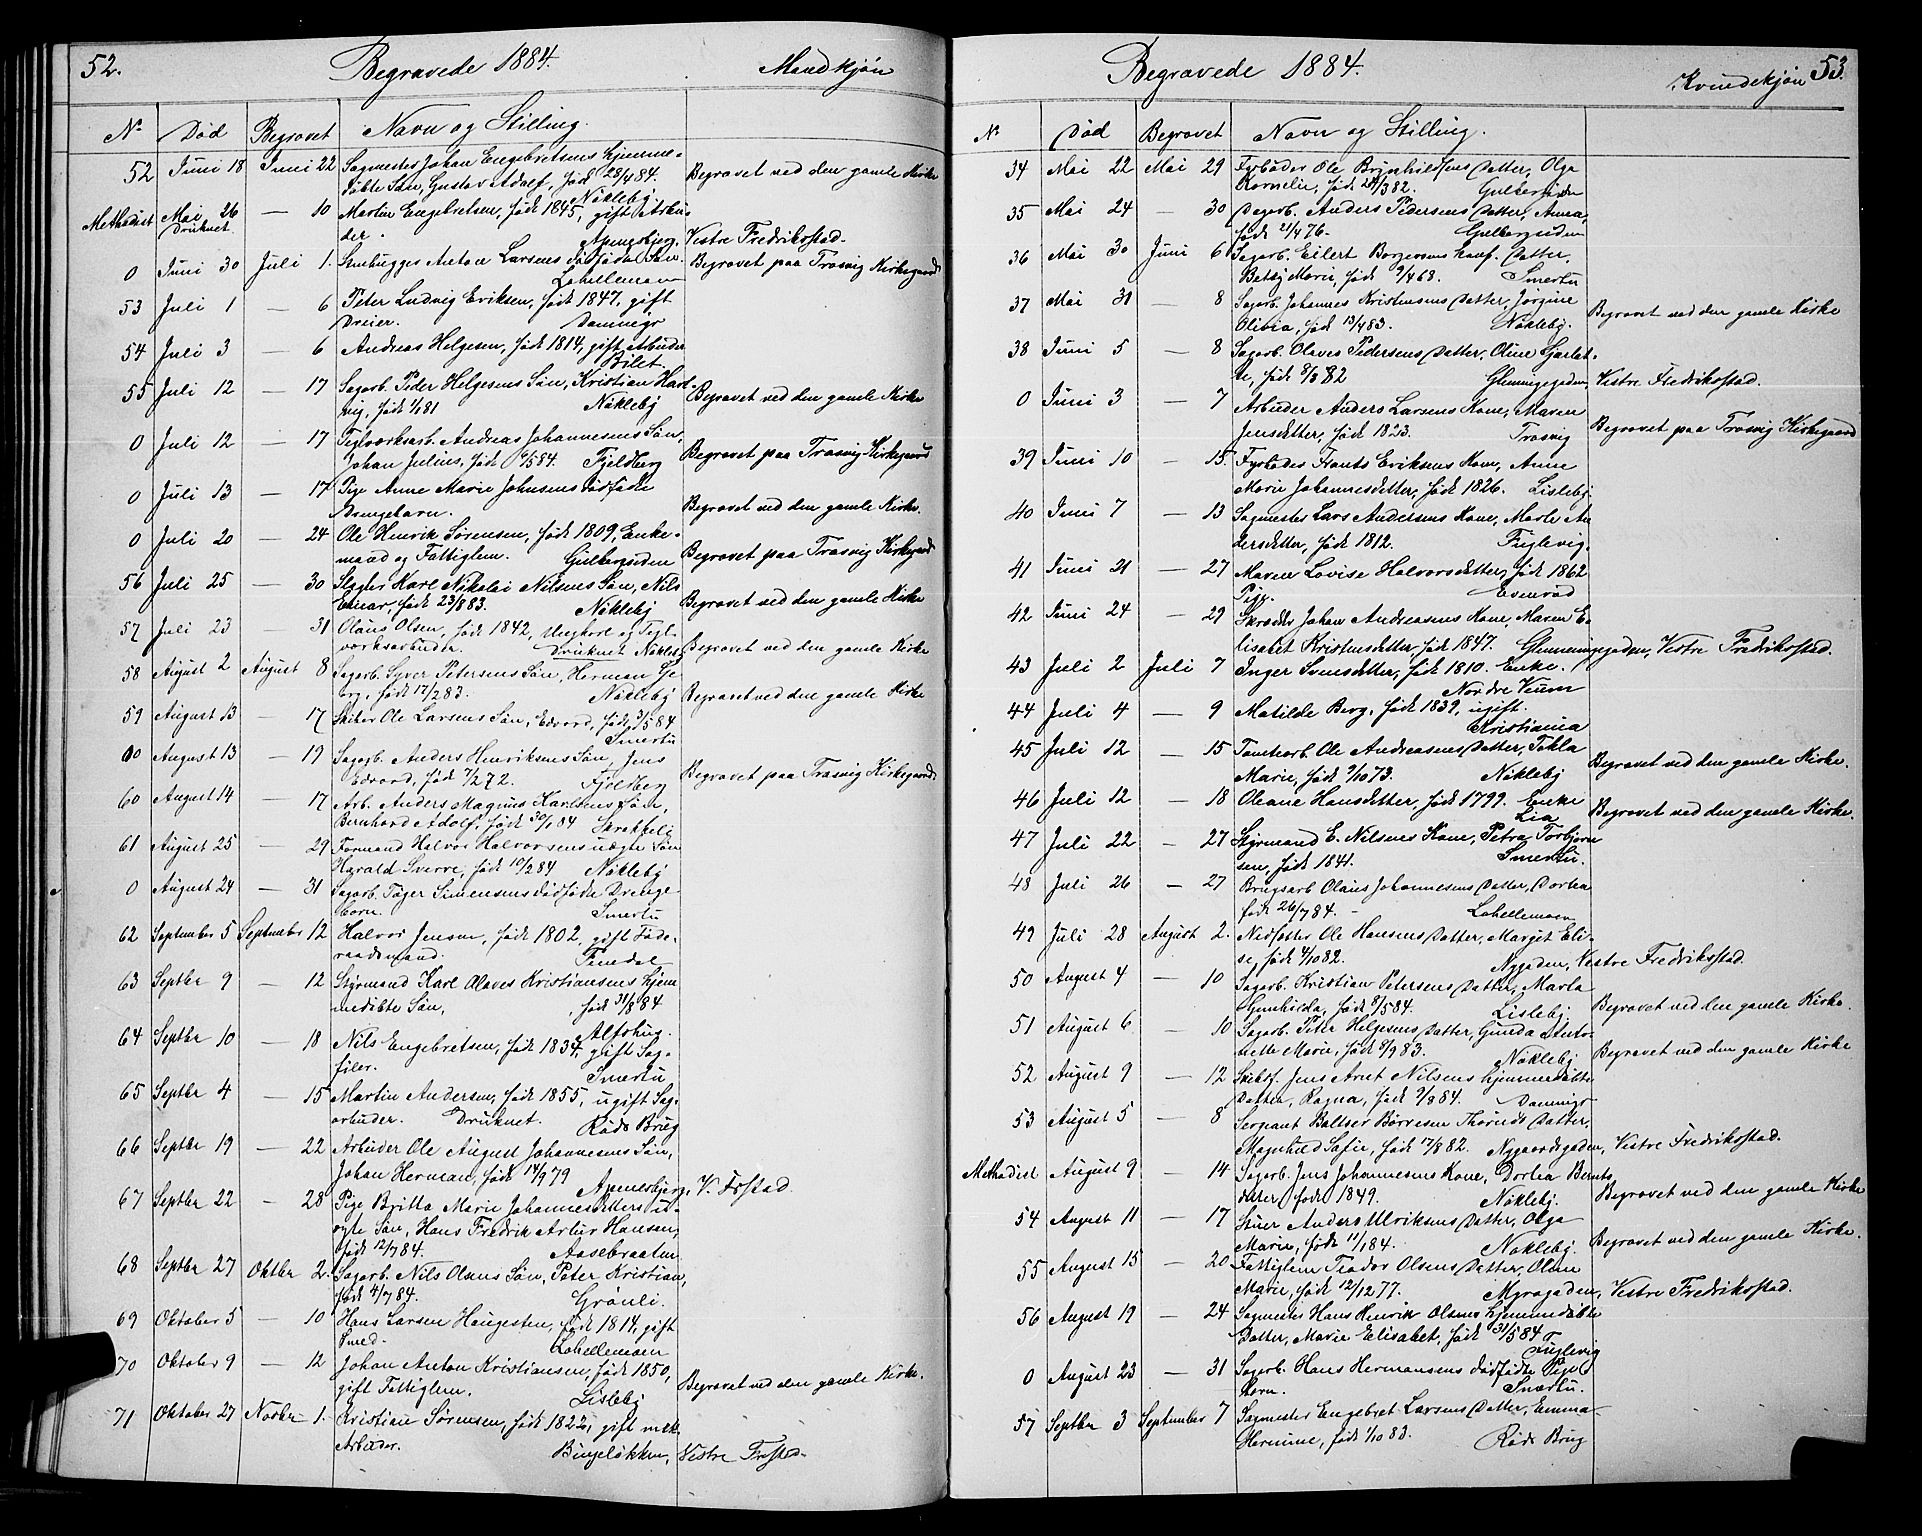 52.
Begravede 1884.
Mandkjøn
No Død Begravet Navn og Stilling.
52 Juni 18 Juni 22 Sagmester Johan Engebretsens hjemme-
døbte Søn, Gustav Adolf, født 28/4 84. Begravet ved den gamle Kirke
Nøkleby
Methodist Mai 26 — 10 Martin Engebretsen, født 1845, gift Arbei-
Druknet der. Apenesbjerg, Vestre Fredrikstad.
0 Juni 30 Juli 1. Stenhugger Anton Larsens dødfødte Søn. Begravet paa Trosvig Kirkegaard
Lahellemoen
53 Juli 1 — 6 Peter Ludvig Eriksen, født 1847, gift
Dreier. Damneys
54 Juli 3 — 6 Andreas Helgesen, født 1814, gift Arbeider
Bilet.
55 Juli 12 — 17 Sagarb. Peder Helgesens Søn, Kristian Hart-
vig, født 1/1 81 Nøkleby Begravet ved den gamle Kirke
0 Juli 12 — 17 Teglværksarb. Andreas Johannesens Søn,
Johan Julius, født 6/5 84. Fjeldberg Begravet paa Trosvig Kirkegaard
0 Juli 13 — 17 Pige Anne Marie Johnsens dødfødte
Drengebarn. Begravet ved den gamle Kirke.
0 Juli 20 — 24 Ole Henrik Sørensen, født 1809, Enke-
mand og Fattiglem. Gulbergsiden Begravet paa Trosvig Kirkegaard
56 Juli 25 — 30 Slagter Karl Nikolai Nilsens Søn, Nils
Einar, født 23/8 83. Nøkleby Begravet ved den gamle Kirke
57 Juli 23 — 31 Olaus Olsen, født 1842, Ungkarl og Tegl-
værksarbeider. Druknet Nøkleby Begravet ved den gamle Kirke
58 August 2 August 8 Sagarb. Syver Petersens Søn, Herman Ge-
org, født 17/2 83. Nøkleby Begravet ved den gamle Kirke
59 August 13 — 17 Skibsr Ole Larsens Søn, Edvard, født 3/5 84
Smertu
60 August 13 — 19 Sagarb. Anders Henriksens Søn, Jens
Edvard, født 7/2 72. Fjeldberg Begravet paa Trosvig Kirkegaard.
60 August 14 — 17 Arb. Anders Magnus Karlsens Søn,
Bernhard Adolf, født 30/1 84
61 August 25 — 29 Formand Halvor Halvorsens uægte Søn
Harald Sverre, født 10/2 84 Nøkleby
0 August 24 — 31 Sagarb. Tøger Simensens dødfødte Drenge-
barn. Smertu
62 September 5 September 12 Halvor Jensen, født 1802, gift Føde-
raadsmand. Tindal
63 Septbr 9 — 12 Styrmand Karl Olaves Kristiansens hjem-
medøbte Søn, født 31/8 84
Altohug.
64 Septbr 10 — 18 Nils Engebretsen, født 1834, gift Sag-
filer. Smertu
65 Septbr 4 — 15 Martin Andersen, født 1855, ugift Sag-
arbeider. Druknet. Røds Brug
66 Septbr 19 — 22 Arbeider Ole August Johannesens Søn,
Johan Herman, født 14/9 79 Apenesbjerg, V. Frstad.
67 Septbr 22 — 28 Pige Britta Marie Johannesdatters u-
ægte Søn, Hans Fredrik Artur Hansen,
født 12/7 84. Aasebraaten
68 Septbr 27 Oktbr 2. Sagarb. Nils Olsens Søn, Peter Kristian,
født 4/7 84. Grønli.
69 Oktober 5 — 10 Hans Larsen Haugesten, født 1814, gift
Smed. Lahellemoen
70 Oktober 9 — 12 Johan Anton Kristiansen, født 1850,
gift Fattiglem. Lisleby Begravet ved den gamle Kirke.
71 Oktober 27 Novbr 1. Kristian Sørensen, født 1822, gift mek.
Arbeider. Bingeløkken, Vestre Frstad.
Begravede 1884.
Kvindekjøn 53.
No Død Begravet Navn og Stilling.
34 Mai 22 Mai 29 Fyrbøder Ole Brynhildsens Datter, Olga
Kornelie, født 24/3 82. Gulbergsiden
35 Mai 24 — 30 Dagarb. Anders Pedersens Datter, Anna,
født 21/4 76. Gulbergsiden
36 Mai 30 Juni 6 Sagarb. Eilert Borgersens Datter,
Betsy Marie, født 9/4 68. Smertu
37 Mai 31 — 8 Sagarb. Johannes Kristensens Datter, Jørgine
Olivia, født 13/4 83. Nøkleby. Begravet ved den gamle Kirke
38 Juni 5 — 8 Sagarb. Olaves Pedersens Datter, Oline Sjarlot-
te, født 8/3 82 Glemmegaden, Vestre Fredrikstad.
0 Juni 3 — 7 Arbeider Anders Larsens Kone, Maren
Jensdatter, født 1823. Trosvig Begravet paa Trosvig Kirkegaard
39 Juni 10 — 15. Fyrbøder Frants Eriksens Kone, Anne
Marie Johannesdatter, født 1826. Lisleby.
40 Juni 7 — 13 Sagmester Lars Andersens Kone, Marte An-
dersdatter, født 1812. Fuglevig.
41 Juni 21 — 27 Maren Lovise Halvorsdatter, født 1862
Pige. Evenrød
42 Juni 24 — 29 Skrædder Johan Andreasens Kone, Maren E-
lisabet Kristensdatter, født 1847. Glemmegaden, Vestre Fredrikstad.
43 Juli 2 Juli 7 Inger Svensdatter, født 1810. Enke.
Nordre Veum
44 Juli 4 — 9 Matilde Berg, født 1839, ugift.
Kristiania
45 Juli 12 — 15 Tomtearb. Ole Andreasens Datter, Tekla
Marie, født 9/10 73. Nøkleby Begravet ved den gamle Kirke.
46 Juli 12 — 18 Oleane Hansdatter, født 1799. Enke
Lia Begravet ved den gamle Kirke.
47 Juli 22 — 27 Styrmand E. Nilsens Kone, Petra Torbjørn-
sen, født 1841. Smertu.
48 Juli 26 — 27 Brugsarb Olaus Johannesens Datter, Dortea
født 26/7 84. Lahellemoen
49 Juli 28 August 2. Nedsætter Ole Hansens Datter, Margit Eli-
se, født 4/10 82. Nygaden, Vestre Fredrikstad.
50 August 4 — 10 Sagarb. Kristian Petersens Datter, Marta
Gunhilda, født 8/5 84. Lisleby. Begravet ved den gamle Kirke.
51 August 6 — 10 Sagarb. Peter Helgesens Datter, Gunda Anto-
nette Marie, født 8/9 83. Nøkleby Begravet ved den gamle Kirke
52 August 9 — 12 Skibsf. Jens Arnt Nilsens hjemmedøbte
Datter, Ragna, født 9/8 84. Damneys
53 August 5 — 8 Sergeant Baltser Børresen Thoruds Datter,
Magnhild Sofie, født 17/8 82. Nygaardsgaden, Vestre Fredrikstad.
Methodist August 9 — 14 Sagarb. Jens Johannesens Kone, Dortea Bernts-
datter født 1849. Nøkleby. Begravet ved den gamle Kirke
54 August 11 — 17 Stuer Anders Ulriksens Datter, Olga
Marie, født 11/1 84. Nøkleby. Begravet ved den gamle Kirke.
55 August 15 — 20 Fattiglem Teodor Olsens Datter, Oline
Marie, født 12/12 77. Myragaden, Vestre Fredrikstad.
56 August 19 — 24 Sagmester Hans Henrik Olsens hjemmedøbte
Datter, Marie Elisabet, født 31/5 84
Fuglevig
0 August 23 — 31 Sagarb. Hans Hermansens dødfødte Pige-
barn. Smertu.
57 Septbr 3 September 7 Sagmester Engebret Larsens Datter, Emma
Hermine, født 1/10 83. Røds Brug